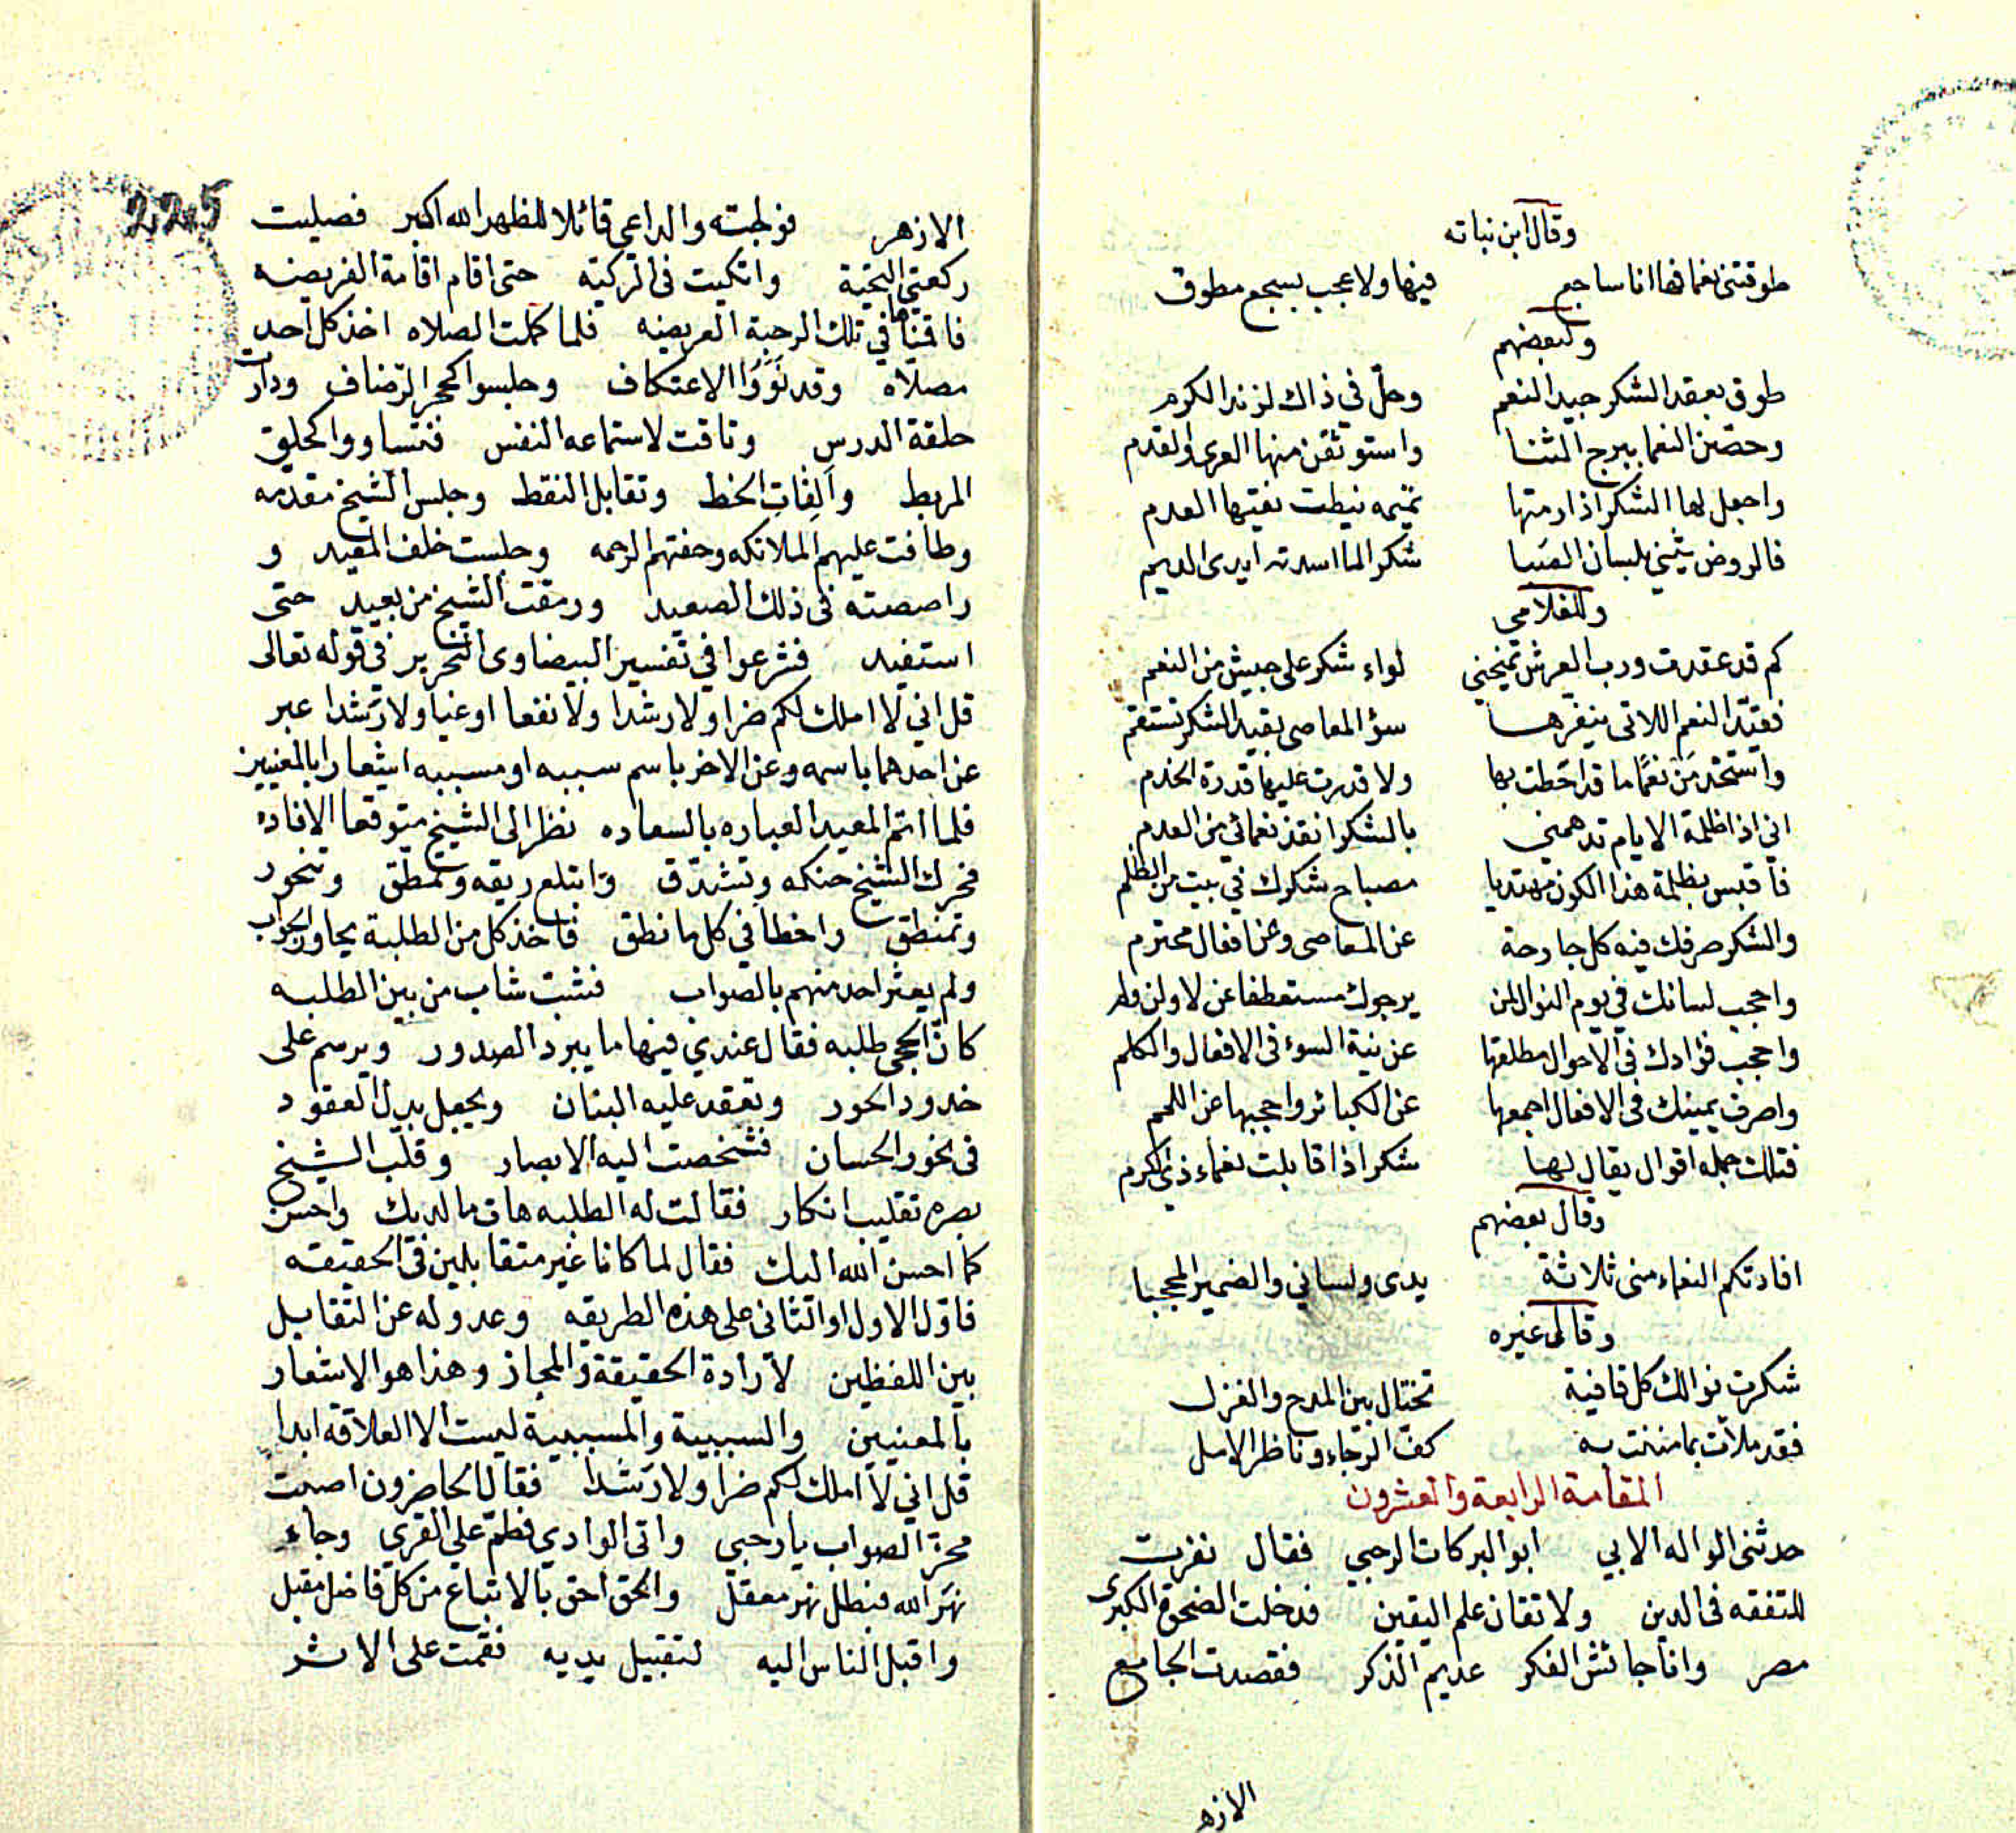 وقال ابن نباته
طوقتنى نعما فها انا ساجع فيها ولا عجب بسجع مطوق
ولبعضهم
طوق بعقد الشكر جيد النعم وحلّ في ذاك لزند الكرم
وحصّن النعما ببرج الثنا واستوثقن منها العرى والقدم
واجعل لها الشكر اذا رمتها تميمه نيطت العدم
فالروض يثني بلسان الصبا شكرا لما اسدته ايدى الديم
وللغلامي
كم قد عقدت ورب العرش تمنحني لواء شكر على جيش من النعم
فقيّد النعم اللاتى ينفرها سؤ المعاصى بقيد الشكر تستقم
ما قد احطت بها ولا قدرت عليها قدرة الخدم
اني اذا ظلمة الايام تدهمني بالشكر انقذ نعمائي من العدم
فاقبس بظلمة هذا الكون مهتديا مصباح شكرك في بيت من الظلم
والشكر صرفك فيه كل جارحة عن المعاصى وعن افعال محترم
واحجب لسانك في يوم النوال لمن يرجوك مستعطفا عن لا ولن ولم
واحجب فؤادك في الاحوال مطلقها عن نية السوء فى الافعال والكلم
واصرف يمينك فى الافعال اجمعها عن الكبائر واحجبها عن اللمم
فتلك جمله اقوال يقال لها شكر اذا قابلت نعماء ذي الكرم
وقال بعضهم
افادتكم النعماء منى ثلاثة يدى ولساني والضمير المحجبا
وقال غيره
شكرت نوالك كل قافية تختال بين المدح والغزل
فقد ملأت بما مننت به كف الرجاء وناظر الامل
المقامة الرابعة والعشرون
حدثنى الواله الابي ابو البركات الرحبي فقال نفرت
للتفقه فى الدين ولاتقان علم اليقين فدخلت الضحوة الكبرى
مصر وانا جائش الفكر عديم الذكر فقصدت الجامع
الازهر
225
الازهر فولجته والداعى قائلا للظهر الله اكبر فصليت
ركعتي التحية واتكيت فى التركيته حتى اقام اقامة الفريضه
فاقمناها في تلك الرحبة العريضه فلما كملت الصلاه اخذ كل احد
مصلاه وقد نووا الاعتكاف وجلسوا كحجر الرضاف ودارت
حلقة الدرس وتاقت لاستماعه النفس فتساووا كحلق
المربط والفات الخط وتقابل النقط وجلس الشيخ مقدمه
وطافت عليهم الملائكه وحفتهم الرحمه وجلست خلف المعيد و
راصصته فى ذلك الصعيد ورمقت الشيخ من بعيد حتى
استفيد فشرعوا في تفسير البيضاوى النحرير فى قوله تعالى
قل اني لا املك لكم ضرا ولا رشدا ولا نفعا او غيا ولا رشدا عبر
عن احدهما باسمه وعن الاخر باسم سببه او مسببه اشعارا بالمعنيين
فلما اتم المعيد العباره بالسعاده نظر الى الشيخ متوقعا الافاده
فحرك الشيخ حنكه وتشدق وابتلع ريقه وتمطق وتنحور
وتمنطق واخطأ في كل ما نطق فاخذ كل من الطلبة يحاور الجواب
ولم يعثر احد منهم بالصواب فنثبت شاب من بين الطلبه
كان الحجى طلبه فقال عندي فيها ما يبرد الصدور ويرسم على
خدود الحور وتعقد عليه البنان ويجعل بدل العقود
فى نحور الحسان فشخصت اليه الابصار وقلب الشيخ
بصره تقليب انكار فقالت له الطلبه هات ما لديك واحسن
كما احسن الله اليك فقال لما كانا غير متقابلين فى الحقيقه
فاول الاول او الثانى على هذه الطريقه وعدوله عن التقابل
بين اللفظين لارادة الحقيقة والمجاز وهذا هو الاشعار
بالمعنيين والسببية والمسببية ليست الا العلاقه ابدا
قل اني لا املك لكم ضرا ولا رشدا فقال الحاضرون اصبت
محزة الصواب يا رحبي واتى الوادي فطم على القري وجاء
نهر الله فبطل نهر معقل والحق احق بالاتباع من كل فاضل مقبل
واقبل الناس اليه لتقبيل يديه فقمت على الاثر